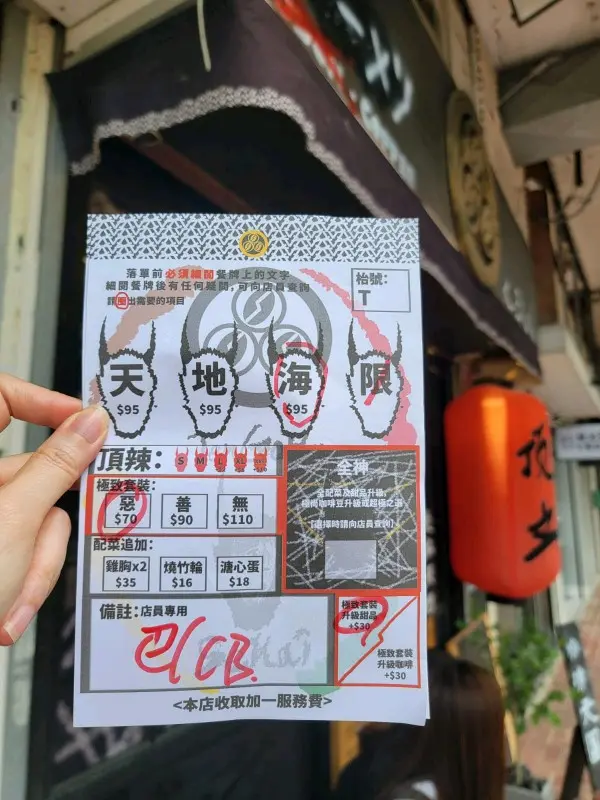 落單前必須細閱餐牌上的文字
細閱餐牌後有任何疑問，可向店員查詢
請圈出需要的項目
枱號：
T
天 地 海 限
$95 $95 $95
頂辣： S M L XL
極致套裝：
惡 善 無
$70 $90 $110
全神
全配菜及甜品升級，
極尚咖啡豆升級或超極之選
【選擇時請向店員查詢】
配菜追加：
雞胸x2 燒竹輪 溏心蛋
$35 $16 $18
備註：店員專用
CB.
極致套裝
升級甜品
+$30
極致套裝
升級咖啡
+$30
<本店收取加一服務費>